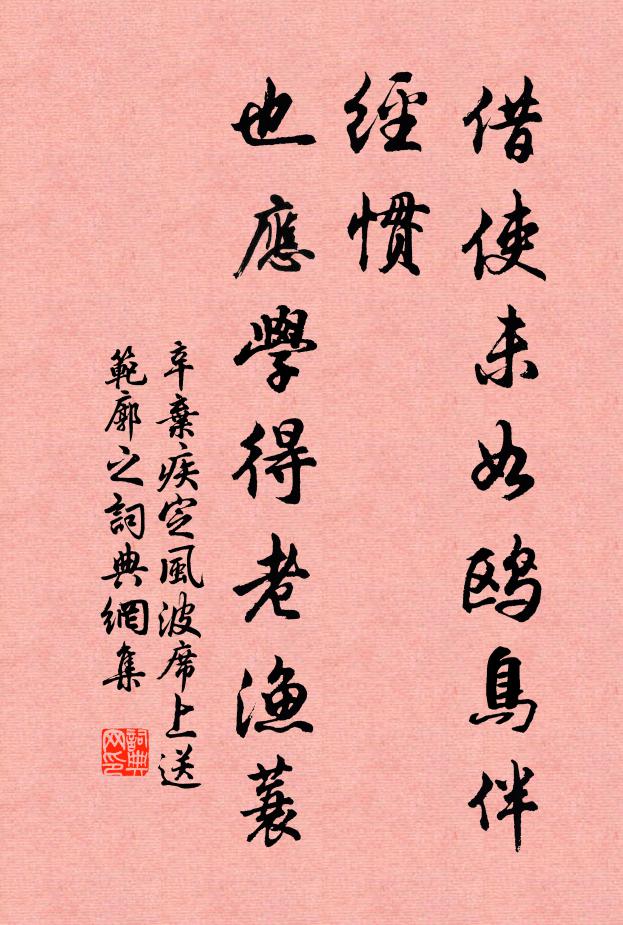 借使未如鸥鳥伴
經慣
也應學得老漁蓑
辛棄疾定風波席上送
範廓之詞典網集
詞典網印